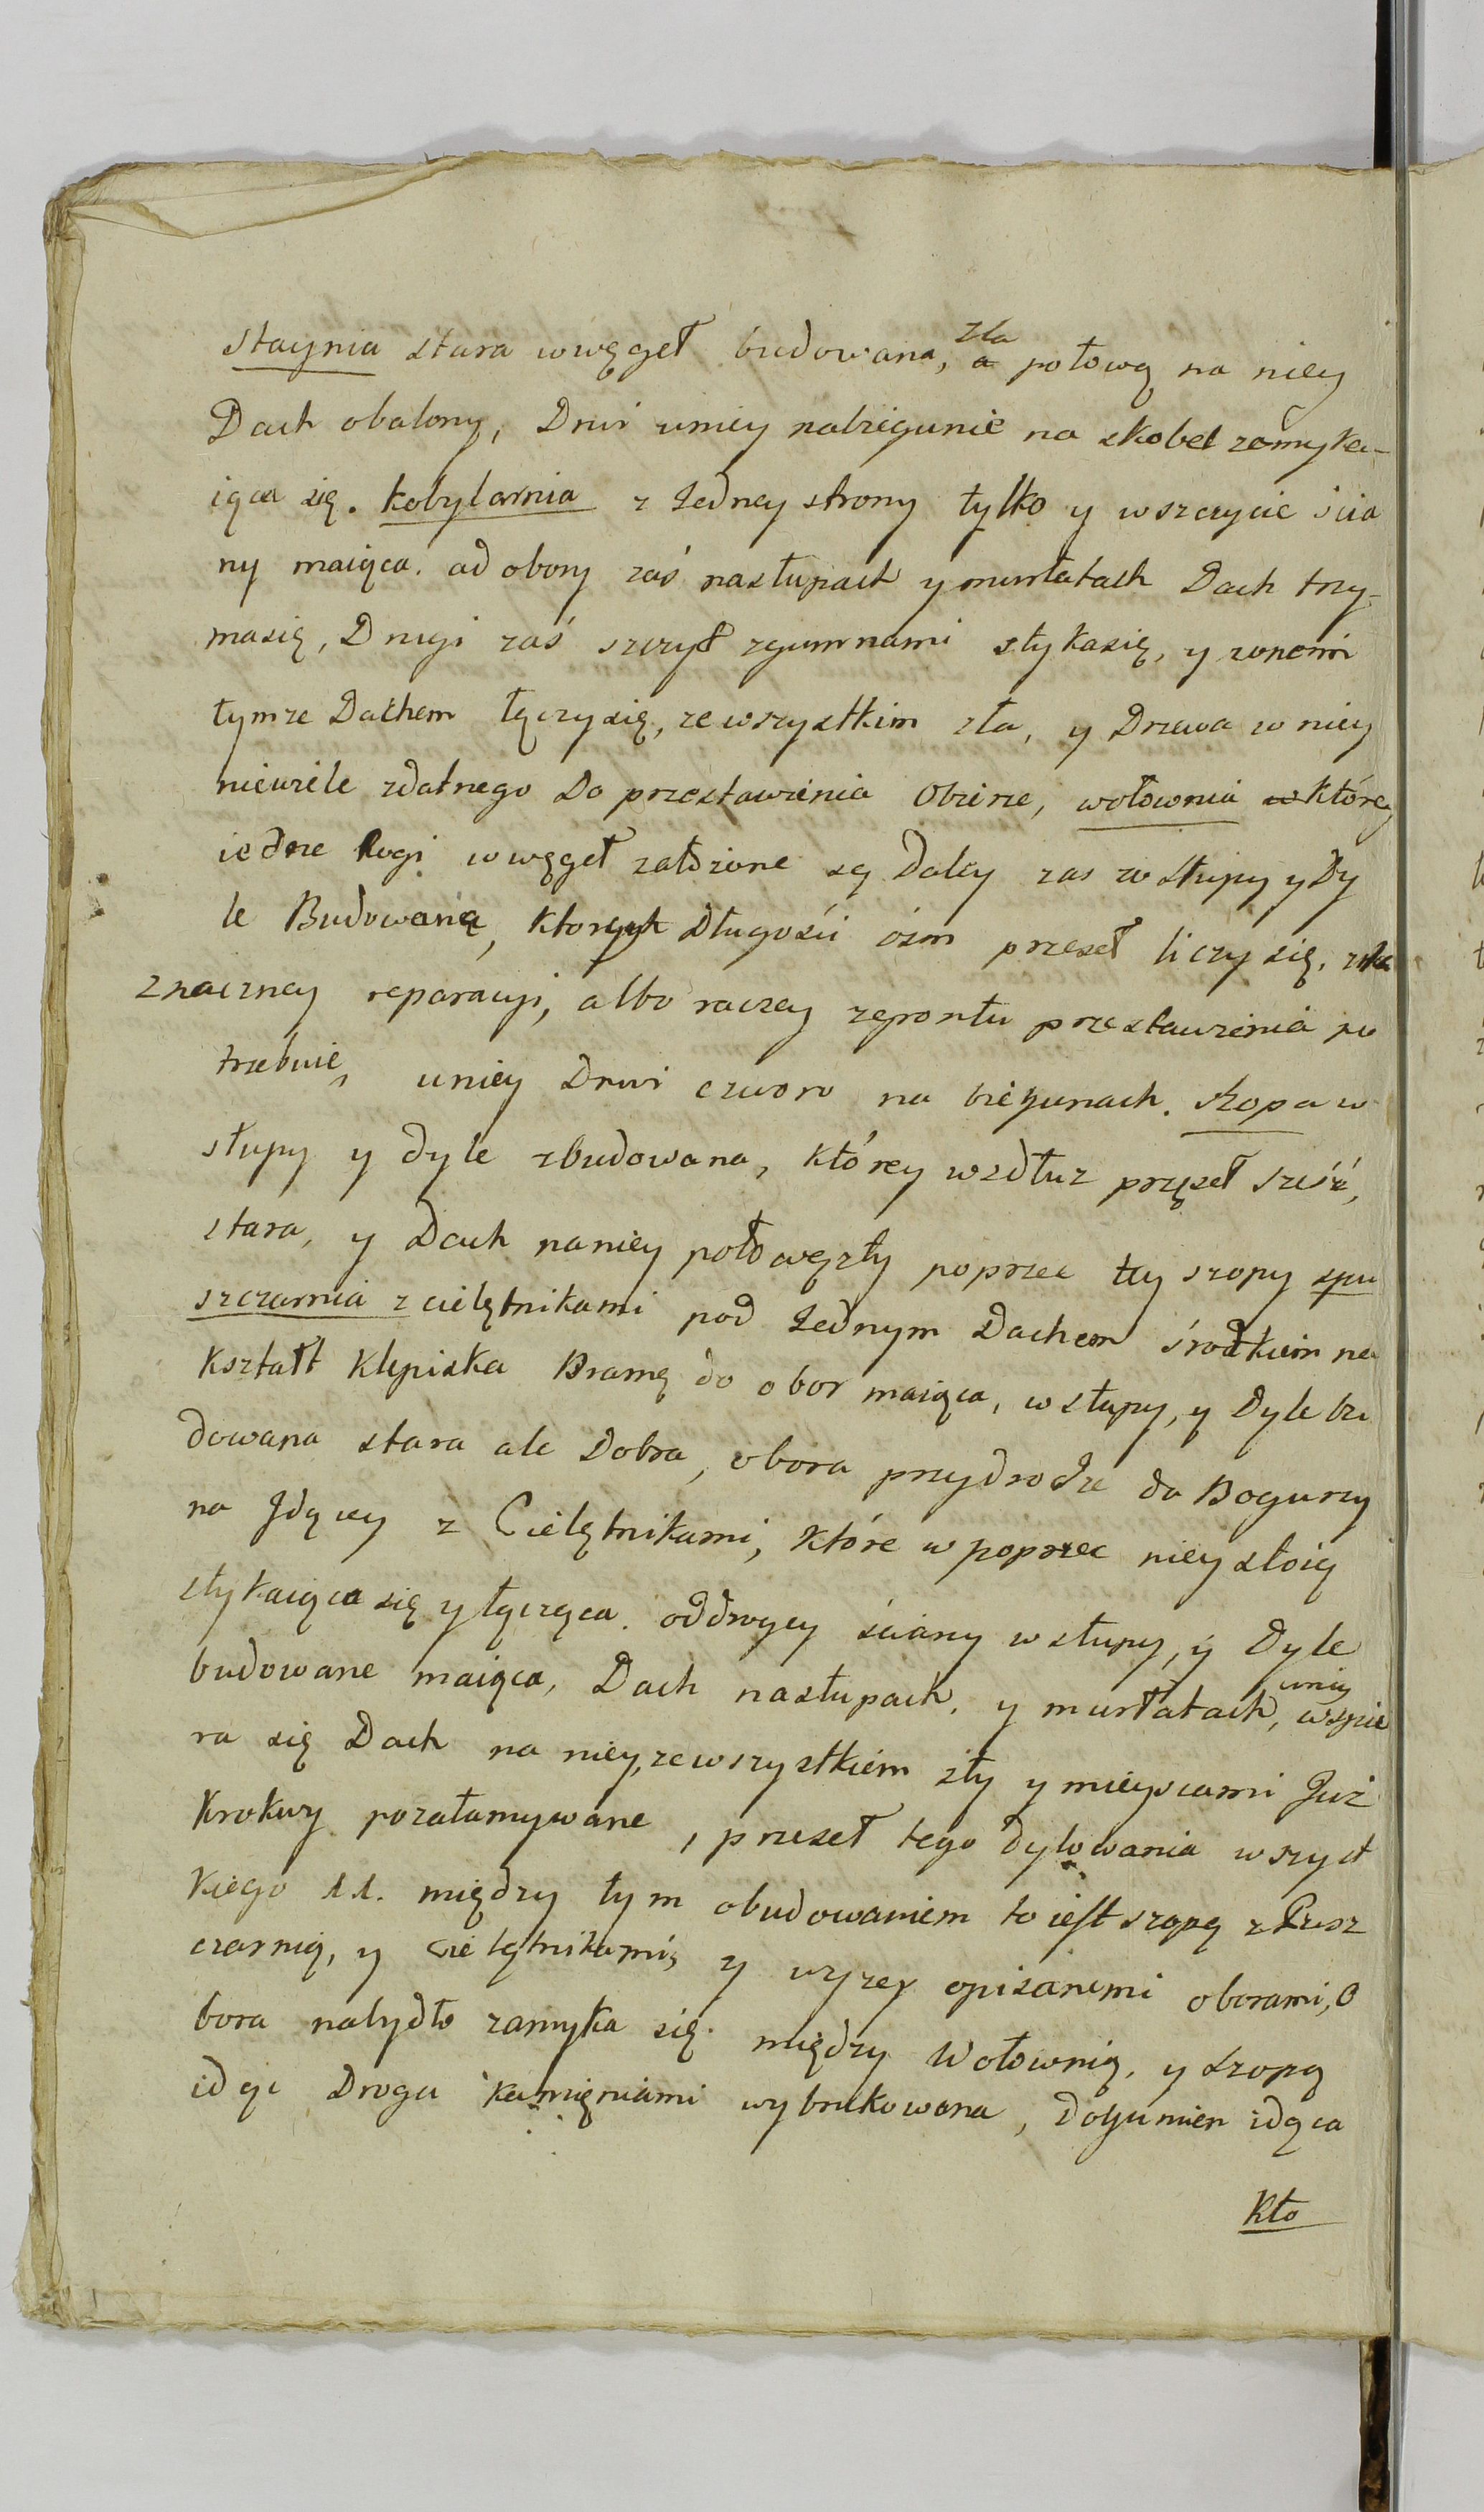 Staynia stara w węgeł budowana, zła a połowę na niey
Dach obalony, Drwi uniey nabiegunie na skobel zamyka-
iące się. Kobylarnia z Jedney strony tylko y w szczycie scia
ny maiąca. od obory zaś nasłupach y murłatach Dach trzy-
masię, Drugi zaś szczyt zgumnami stykasię, y zonemi
tymze Dachem łączysię, ze wszystkim zła, y Drzewa w niey
niewiele zdatnego do przestawienia Obierze, wołownia w którey
iedne Rogi w węgeł załozone są Daley zas w słupy y Dy
le Budowania, ktorych Długości ośm przeseł liczy się, zła
znaczney reparacyi, albo raczey zgrontu przestawienia po
trzebuie, uniey Drwi czworo na biegunach. Szopa w
słupy y dyle zbudowana, którey wzdłuz przęseł sześć,
stara, y Dach naniey połowęzły poprzec tey szopy spu
szczarnia z cielętnikami pod Jednym Dachem środkiem na
Kształt Klepiska Bramę do obor maiąca, w słupy, y Dyle bu
dowana stara ale Dobra, obora przydrodze do Bogurzy
na Jdącey z Cielętnikami, które w poprzec niey stoią
stykaiąca się y łącząca. oddrugiey sciany w słupy, y Dyle
budowane maiąca, Dach nasłupach, y murłatach, uniey wspie
ra się Dach na niey, zewszystkiem zły y mieyscami Juz
Krokwy pozałamywane, przeseł tego dylowania wszyst
kiego 11. między tym obudowaniem to iest szopą z Pusz
czarnią, y cielętnikami, y wyzey opisanemi oborami, O
bora nabydło zamyka się. między Wołownią, y szopą
idąc Droga kamięniami wybrukowana, dogumien idąca
Kto